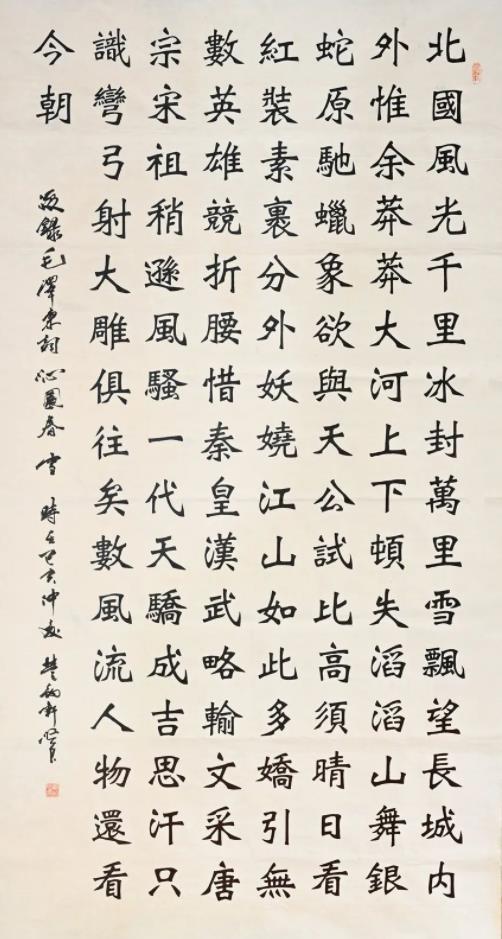 北國風光千里冰封萬里雪飄望長城内
外惟余莽莽大河上下頓失滔滔山舞銀
蛇原馳蠟象欲與天公試比高須晴日看
紅裝素裹分外妖嬈江山如此多嬌引無
數英雄競折腰惜秦皇漢武略輸文采唐
宗宋祖稍遜風騷一代天驕成吉思汗只
識彎弓射大雕俱往矣數風流人物還看
今朝
毛澤東詞沁園春雪時在